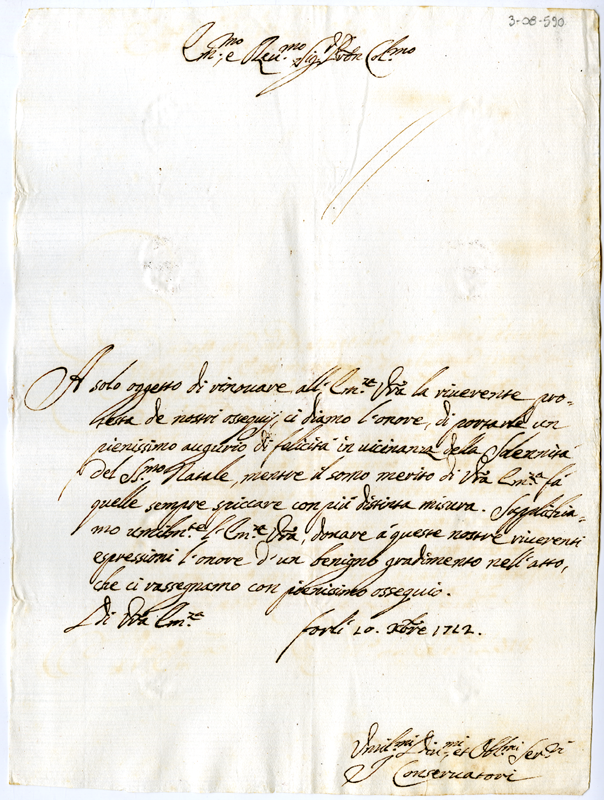 3-08-590
Em.mo, e Reu.mo Sig.r Pron Col.mo
A solo oggetto di rinouare all' Em.ze Vra la riuerente pro-
testa de nostri ossequij, ci diamo l'onore, di portarle un
pienissimo augurio di felicità in uicinanza della Solennità
del S.mo Natale, mentre il somo merito di Vra Em.za fà
quelle sempre spiccare con più distinta misura. Supplichia-
mo umilm.te l'Em.ze Vra, donare à queste nostre riuerenti
espressioni l'onore d'un benigno gradimento nell'atto,
che ci rassegnamo con pienissimo ossequio.
Di Vra Em.ze
Forlì 20. Xbre 1712.
Vmil.mi Diu.mi, et Obl.mi Ser.di
Conseruatori